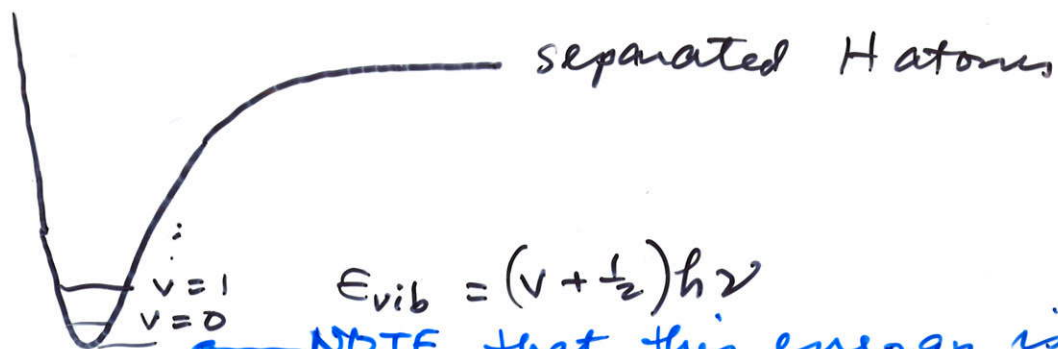 separated H atoms
:
v = 1
ϵvib = (v + 1/2)hν
v = 0
NOTE that this energy is